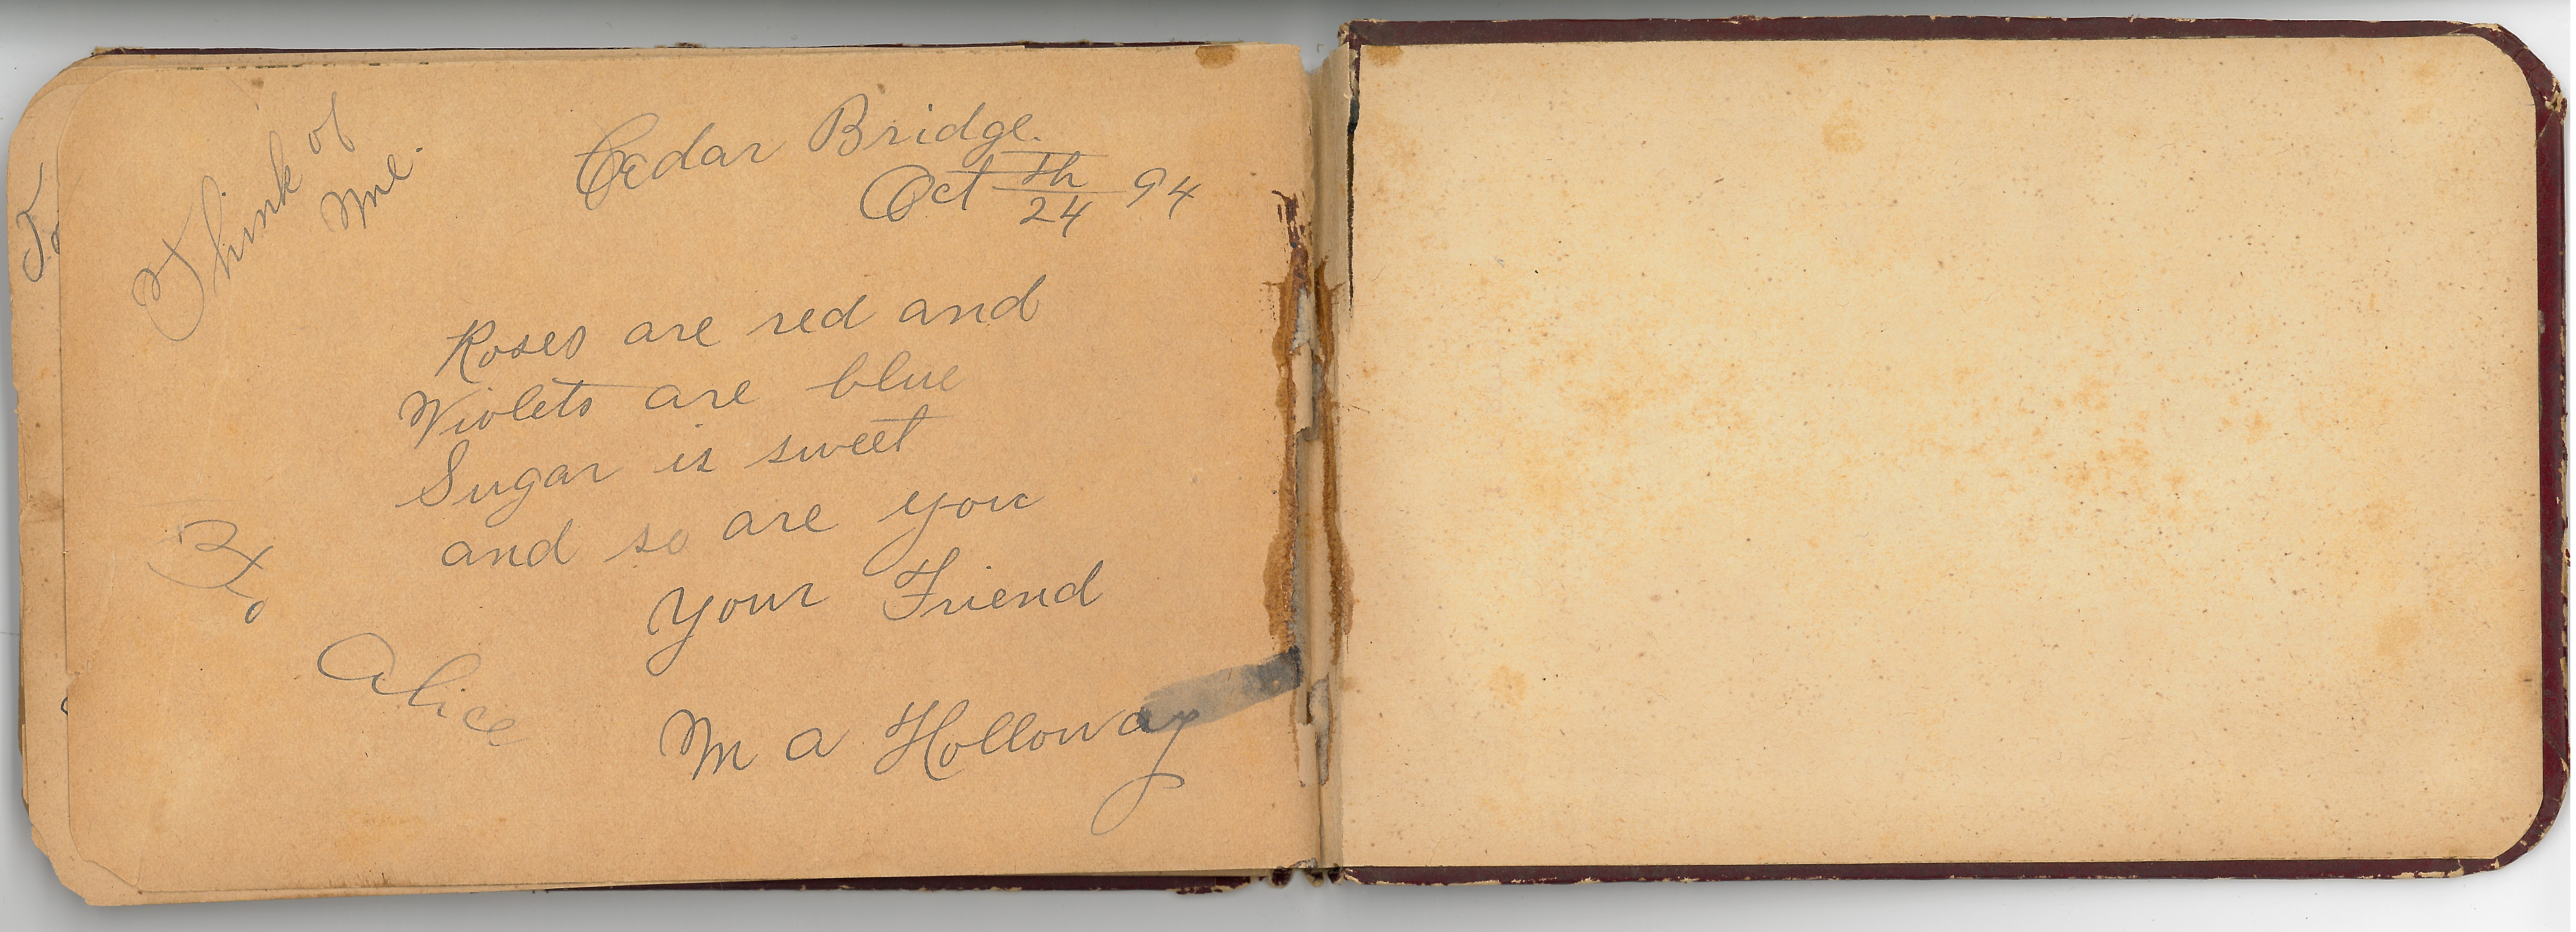 Think of
Me.
Cedar Bridge.
Oct 24th 94
Roses are red and
Violets are blue
Sugar is sweet
and so are you
Your Friend
M A Holloway
To
Alice
To